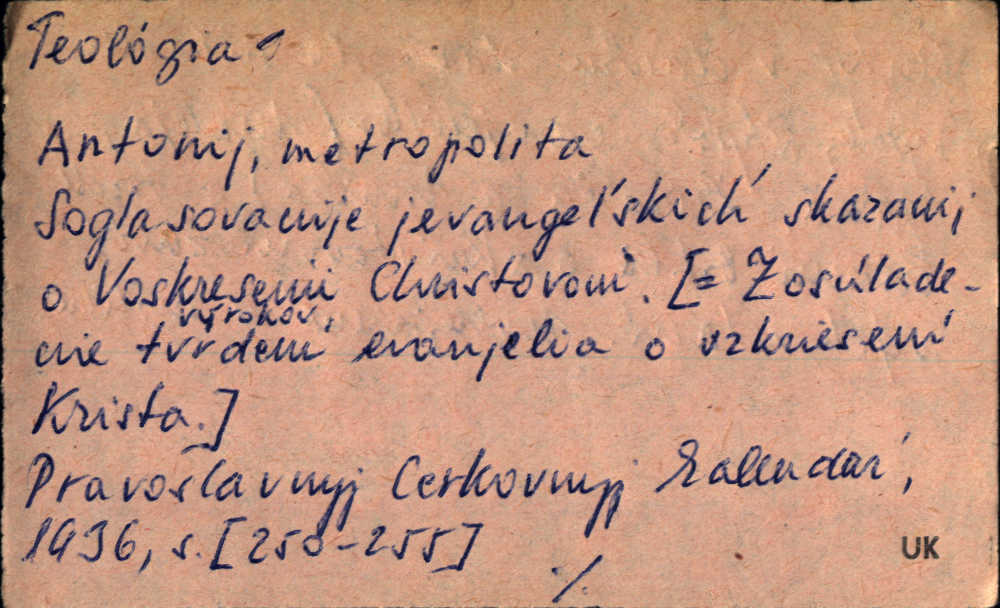 Teológia 1
Antonij, metropolita
Soglasovanije jevangeľskich skazanij
o Voskresenii Christovom. [= Zosúlade-
výrokov,
nie tvrdení evanjelia o vzkriesení
Krista.]
Pravoslavnyj Cerkovnyj Kalendar',
1936, s. [250-255]
./.
UK